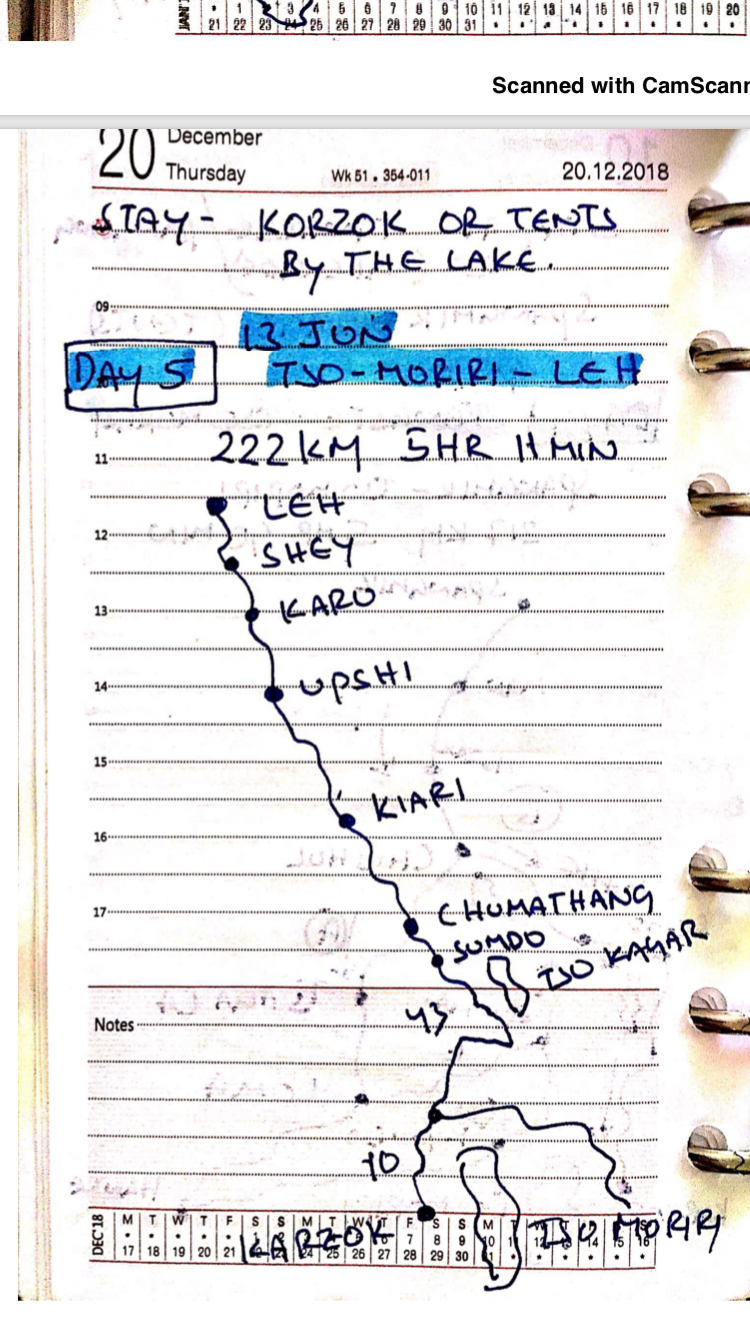 1 3 4 5 6 7 8 9 10 11 12 13 14 15 16 17 18 19 20
21 22 23 24 25 26 27 28 29 30 31
Scanned with CamScann
20 December
Thursday
Wk 51 . 354-011
20.12.2018
STAY - KORZOK OR TENTS
BY THE LAKE.
09
13 JUN
DAY 5 TSO-MORIRI - LEH
11 222 KM 5HR 11 MIN
LEH
12
SHEY
13 KARU
14 UPSHI
15
KIARI
16
17 CHUMATHANG
SUMDO
TSO KAYAR
Notes 43
10
DEC'18 M T W T F S S M T W T F S S M
17 18 19 20 21 24 25 26 27 28 29 30
KARZOK TSO MORIRI